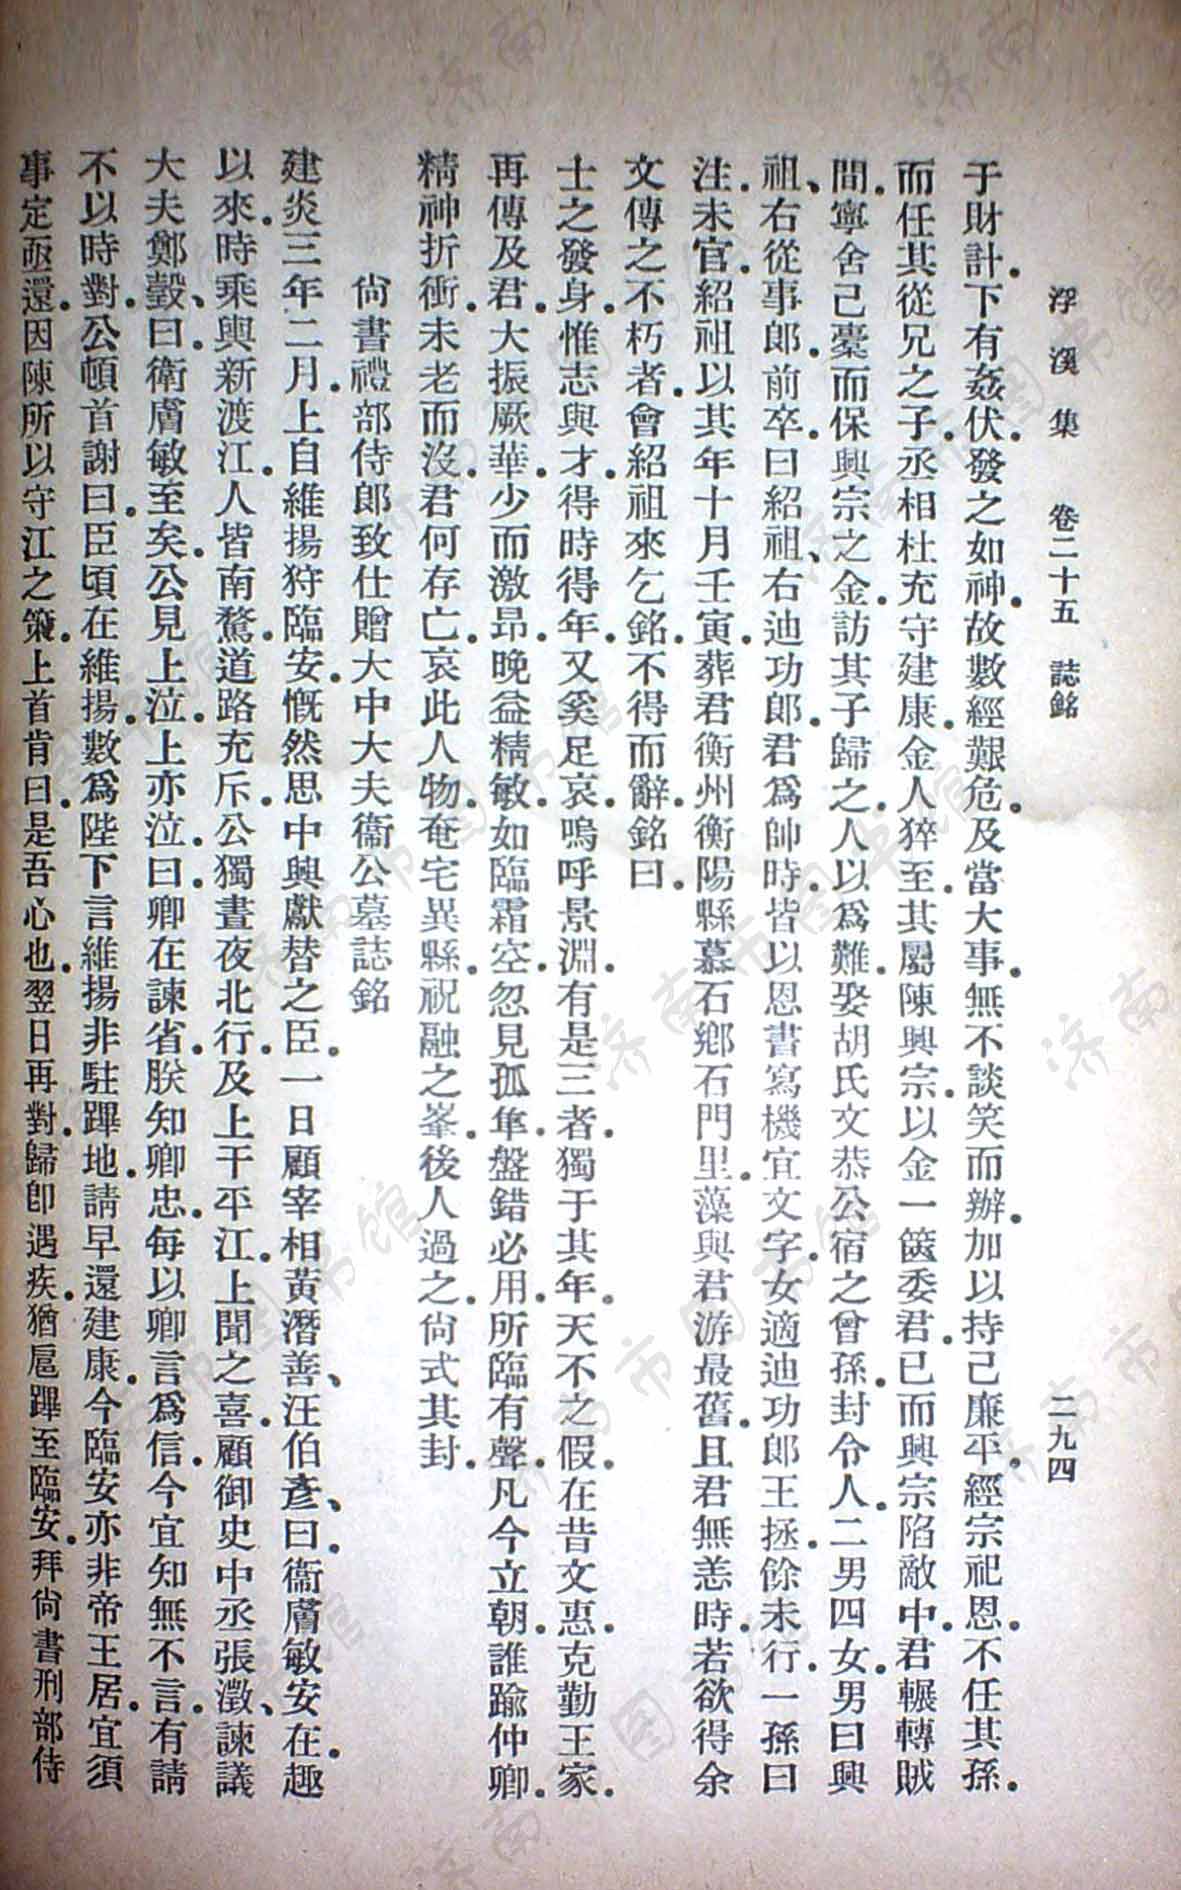 浮溪集　卷二十五　誌銘　二九四
于財計。下有姦伏。發之如神。故數經艱危。及當大事。無不談笑而辦。加以持己廉平。經宗祀恩。不任其孫。
而任其從兄之子。丞相杜充守建康。金人猝至。其屬陳興宗。以金一篋委君。已而興宗陷敵中。君輾轉賊
間。寧舍己橐而保興宗之金。訪其子歸之。人以爲難。娶胡氏。文恭公宿之曾孫。封令人。二男四女。男曰興
祖、右從事郎。前卒。曰紹祖、右迪功郎。君爲帥時。皆以恩書寫機宜文字。女適迪功郎王拯。餘未行。一孫曰
注。未官。紹祖以其年十月壬寅。葬君衡州衡陽縣慕石鄉石門里。藻與君游最舊。且君無恙時。若欲得余
文傳之不朽者。會紹祖來乞銘。不得而辭。銘曰。
士之發身。惟志與才。得時得年。又奚足哀。嗚呼景淵。有是三者。獨于其年。天不之假。在昔文惠。克勤王家。
再傳及君。大振厥華。少而激昂。晚益精敏。如臨霜空。忽見孤隼。盤錯必用。所臨有聲。凡今立朝。誰踰仲卿。
精神折衝。未老而沒。君何存亡。哀此人物。奄宅異縣。祝融之峯。後人過之。尙式其封。
尙書禮部侍郎致仕贈大中大夫衞公墓誌銘
建炎三年二月。上自維揚狩臨安。慨然思中興獻替之臣。一日顧宰相黃潛善、汪伯彥、曰。衞膚敏安在。趣
以來。時乘輿新渡江。人皆南騖。道路充斥。公獨晝夜北行。及上于平江。上聞之喜。顧御史中丞張澂、諫議
大夫鄭瑴、曰。衞膚敏至矣。公見上泣。上亦泣。曰。卿在諫省。朕知卿忠。每以卿言爲信。今宜知無不言。有請
不以時對。公頓首謝曰。臣頃在維揚。數爲陛下言維揚非駐蹕地。請早還建康。今臨安亦非帝王居。宜須
事定亟還。因陳所以守江之策。上首肯曰。是吾心也。翌日再對。歸卽遇疾。猶扈蹕至臨安。拜尙書刑部侍